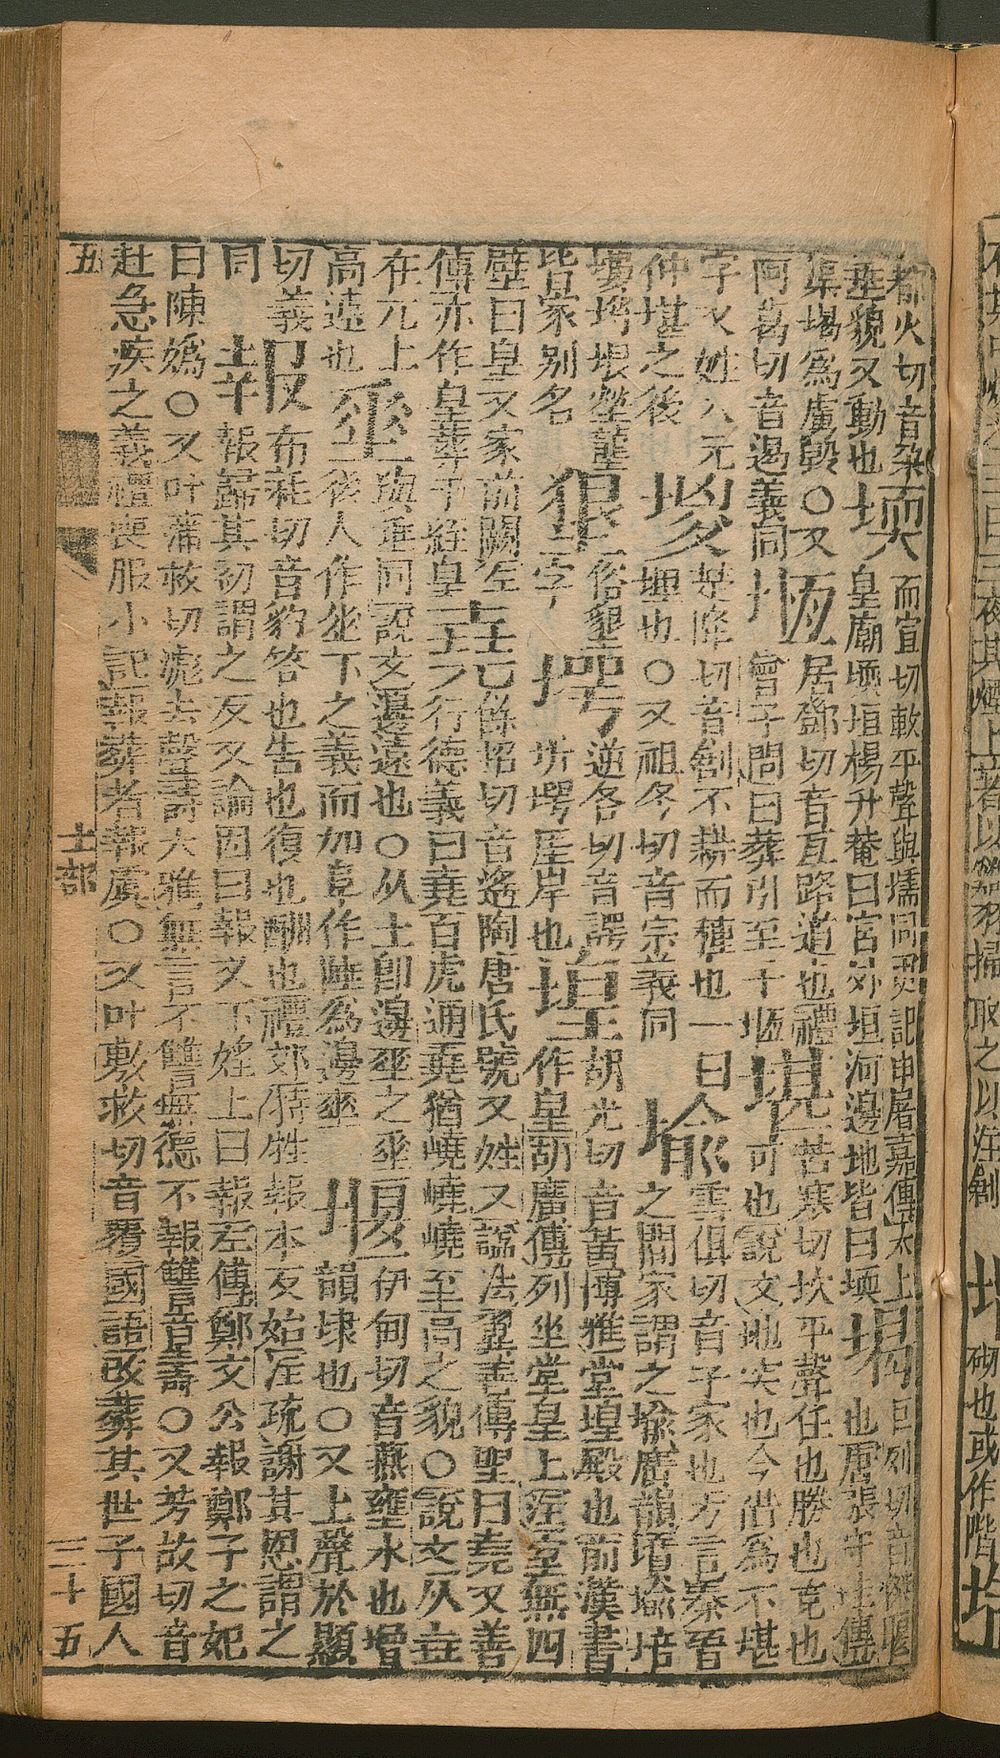 都火切音朶
垂貌又動也
堧
而宣切軟平聲與壖同史記申屠嘉傳太上
皇廟堧垣楊升菴曰宮外垣河邊地皆曰堧
堨
巨列切音傑堰
也唐張守珪傳
渠堨爲虜毀○又
阿葛切音遏義同
堩
居鄧切音亙路道也禮
曾子問曰葬引至于堩
堪
苦寒切坎平聲任也勝也克也
可也說文地突也今借爲不堪
字又姓八元
仲堪之後
堫
降切音創不耕而種也一曰
堙也○又祖冬切音宗義同
堬
雲俱切音于家也方言秦晉
之間家謂之堬廣韻墳堬培
塿埓垠壟
皆冢别名
俗墾
字
堮
逆各切音諤
圻堮崖岸也
堭
胡光切音黃博雅堂堭殿也前漢書
作皇胡廣傳列坐堂皇上注室無四
壁曰皇又家前闕左
傳亦作皇葬于絰皇
堯
餘招切音遙陶唐氏號又姓又諡法翼善傳聖曰堯又善
行德義曰堯百虎通堯猶嶢嶢嶢至高之貌○說文从垚
在兀上
高遠也
埀
與垂同說文邊遠也○从土卽邊埀之埀
後人作埀下之義而加阜作陲爲邊埀
堰
伊甸切音燕壅水也增
韻埭也○又上聲於顯
切義
同
報
布耗切音豹答也告也復也酬也禮郊特牲報本反始注疏謝其恩謂之
報歸其初謂之反又論囚曰報又下婬上曰報左傳鄭文公報鄭子之妃
曰陳嬀○又叶蒲救切瀌去聲詩大雅無言不讎無德不報讎音壽○又芳故切音
赴急疾之義禮喪服小記報葬者報虞○又叶敷救切音覆國語改葬其世子國人
五
土部
三十五